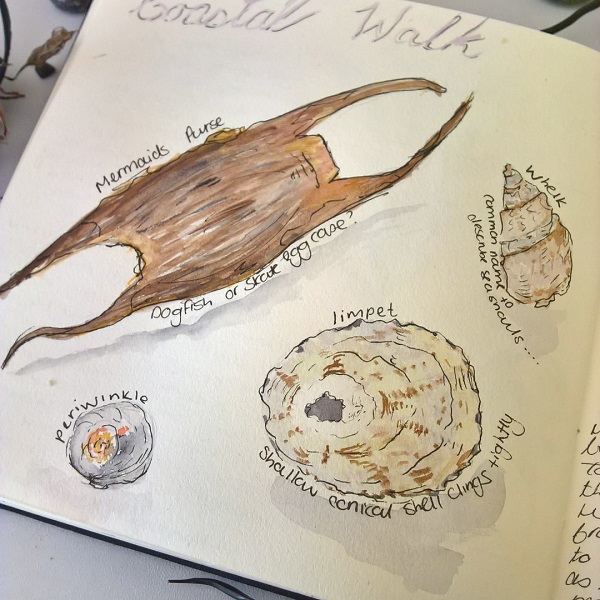 Coastal Walk
Mermaids Purse
Dogfish or skate egg case?
Whelk
common name to
describe sea snails....
limpet
shallow conical shell clings tightly
periwinkle
to
as